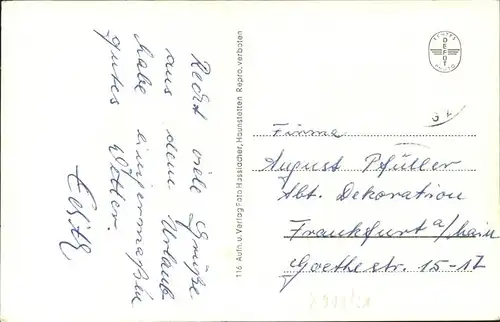 Recht viele Grüße
aus dem Urlaub
habe einigermaßen
gutes Wetter.
Edith
116 Aufn. u. Verlag Foto Hasslacher, Haunstetten Repro. verboten
DEFOT
Firma
August Pfüller
Abt. Dekoration
Frankfurt a/Main
Goethestr. 15-17